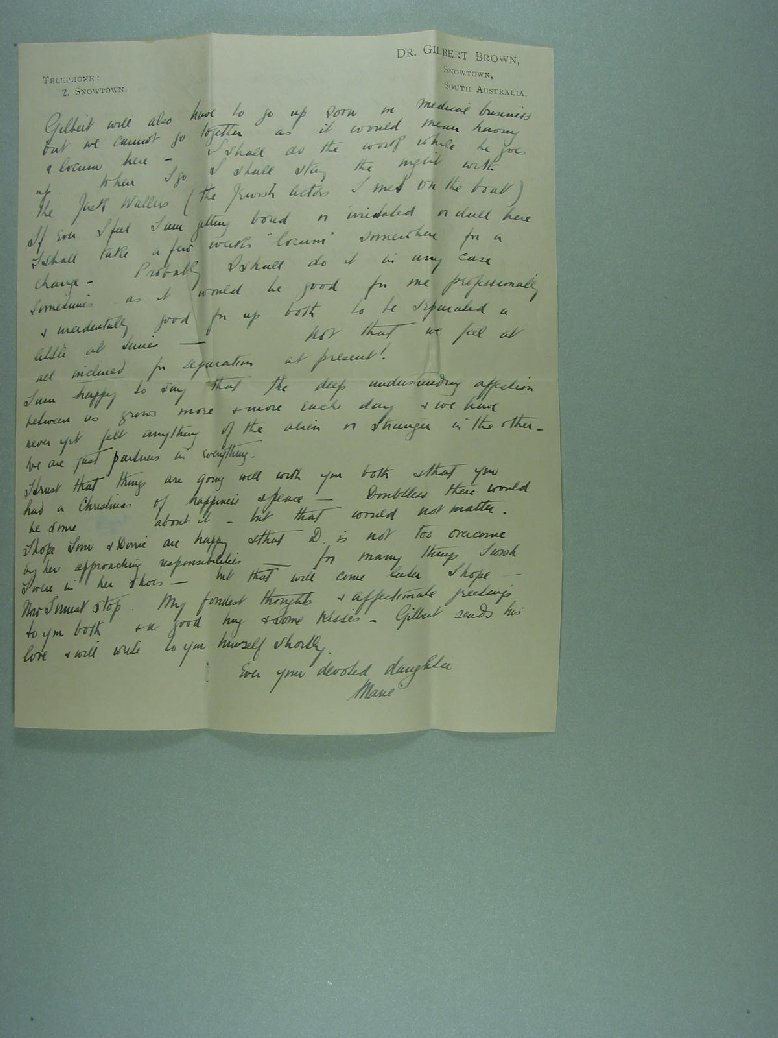 DR. GILBERT BROWN,
SNOWTOWN,
SOUTH AUSTRALIA.
TELEPHONE:
2, SNOWTOWN.
Gilbert will also have to go up soon on medical business
but we cannot go together as it would mean having
a locum here – I shall do the work while he goes
up. When I go I shall stay the night with
the Jack Wallers (the Jewish actors I met on the boat)
If ever I feel I am getting bored or or dull here
I shall take a few weeks "locum" somewhere for a
change – Probably I shall do it in any case
sometimes as it would be good for me professionally
& incidentally good for us both to be separated a
little at times — Not that we feel at
all inclined for separation at present!
I am happy to say that the deep understanding affection
between us grows more & more each day & we have
never yet felt anything of the alien or stranger in the other –
We are just partners in everything.
I trust that things are going well with you both & that you
had a Christmas of happiness & peace — Doubtless there would
be some about it – but that would not matter.
I hope Tom & Dorrie are happy & that D. is not too overcome
by her approaching responsibilities — for many things I wish
I were in her shoes — but that will come later I hope —
Now I must stop. My fondest thoughts & affectionate greetings
to you both & a good hug & some kisses – Gilbert sends his
love & will write to you himself shortly.
Ever your devoted daughter
Marie